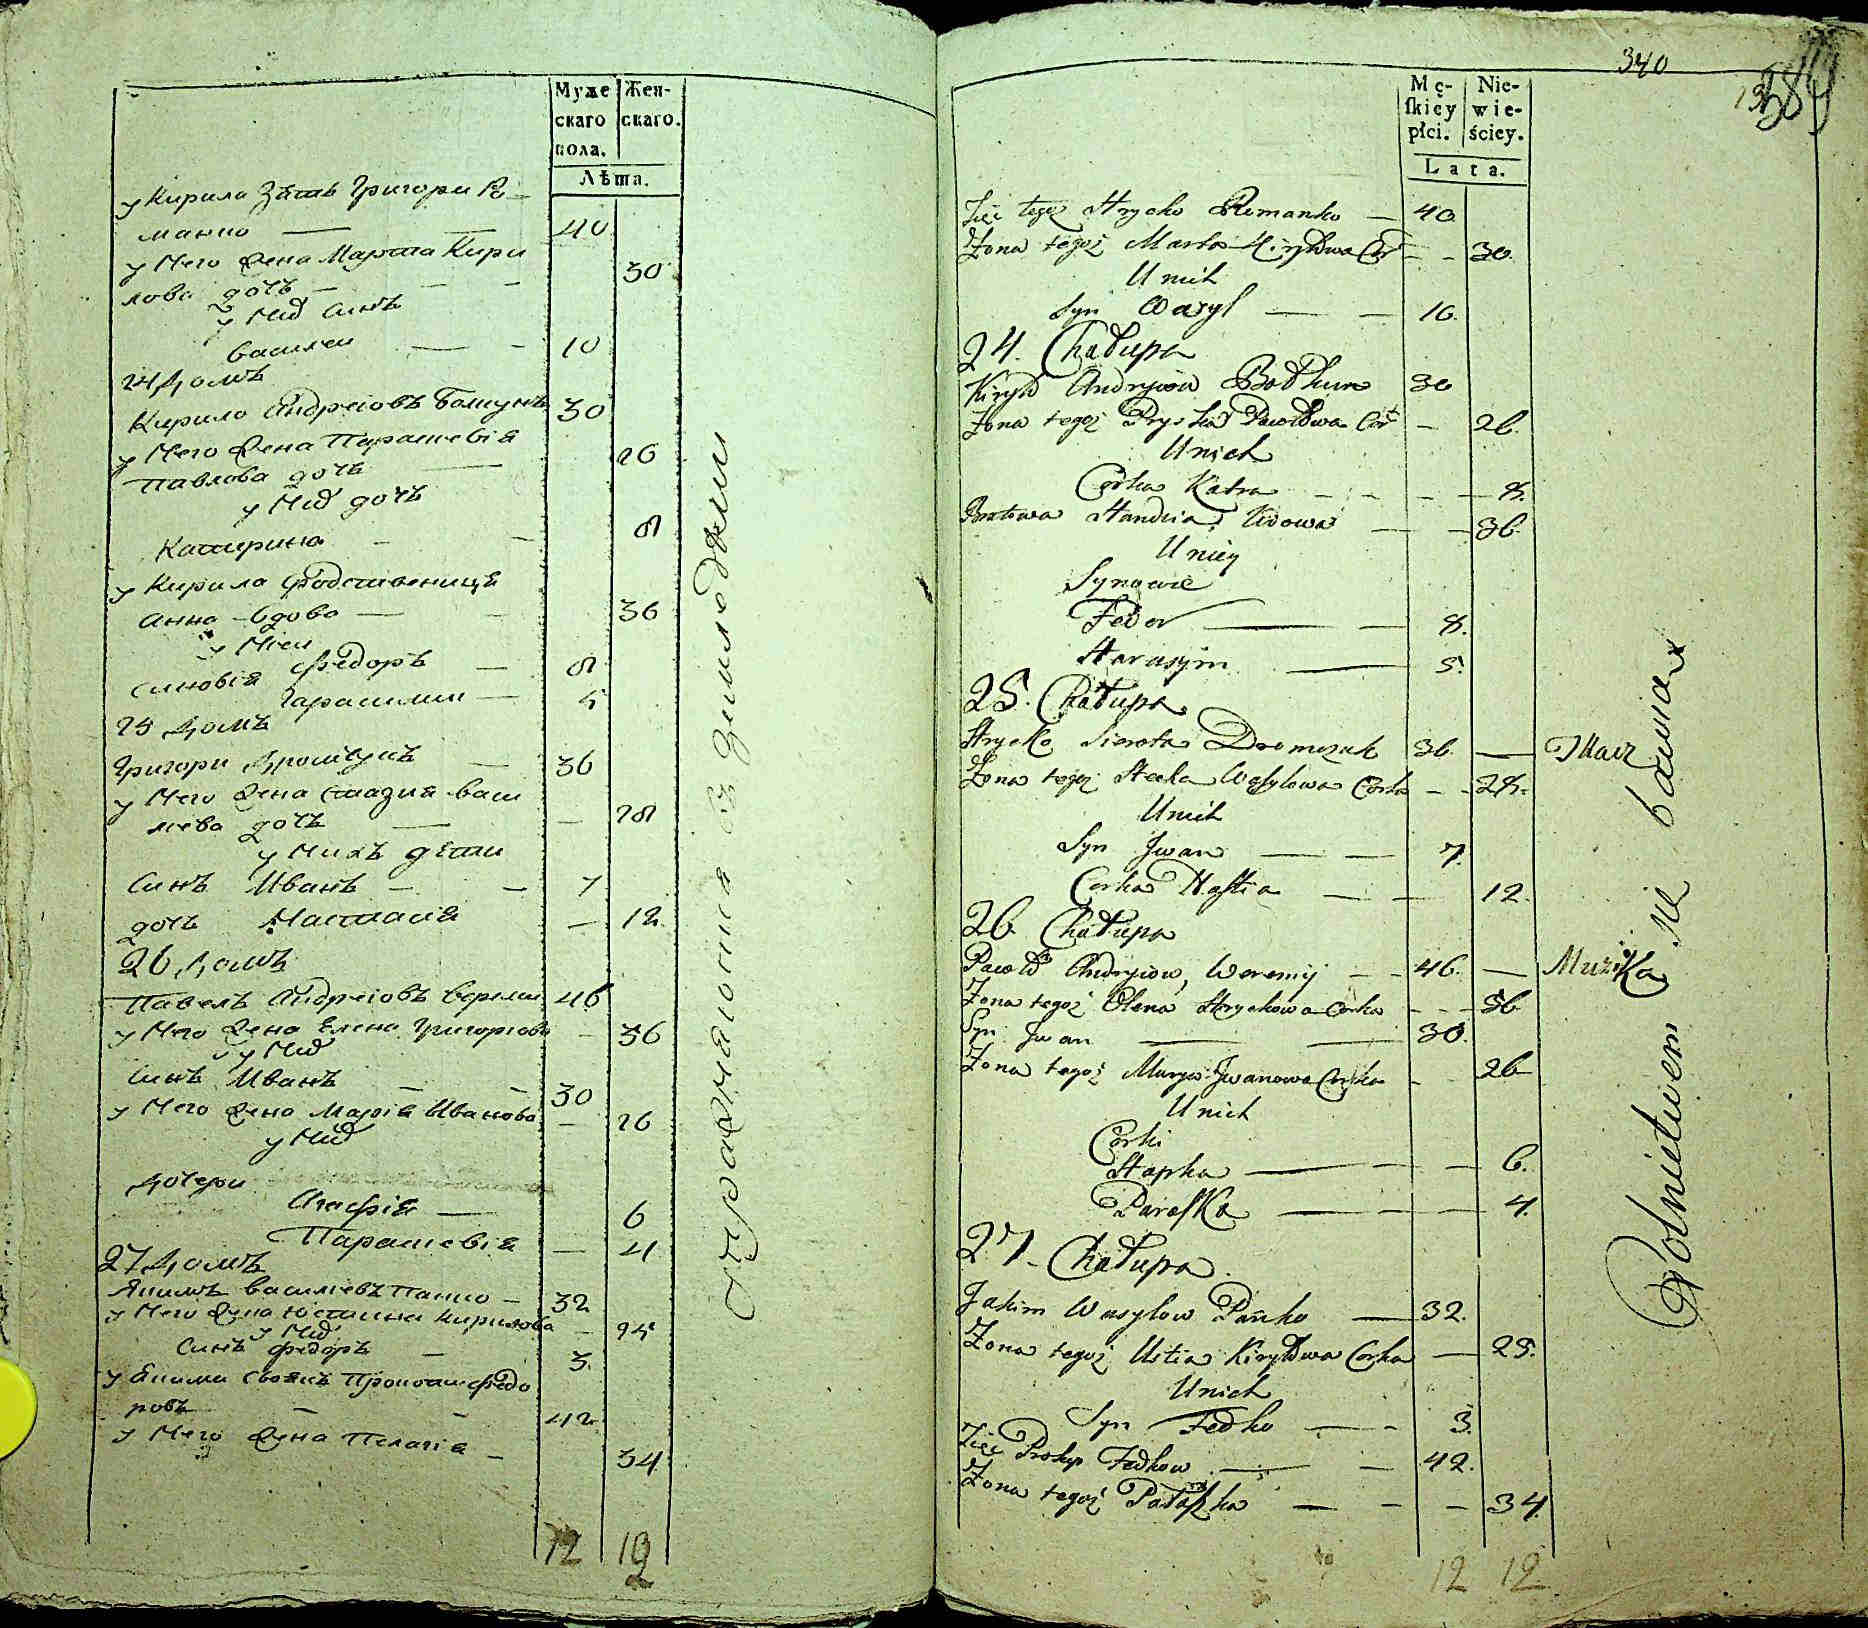 Муже
скаго
пола.
Жен-
скаго.
Лѣта.
у Кирила Зять Григори Ро-
манко — 40
у Него Жена Марта Кири
лова дочъ — 30
у Них Синъ
Василеи — 10
24 Домъ
Кирило Андреіовъ Болтунъ 30
у Него Жена Парасчевія
Павлова дочъ — 26
у Них дочъ
Катерина — 8
у Кирила родственница
Анна вдова — 36
у Неи
Синовія Федоръ — 8
Гарасимъ — 5
25 Домъ
Григори — 36
у Него Жена Стазия Васи
лева дочъ — 28
у Нихъ дети
Синъ Иванъ — 7
дочъ Настасія — 12
26 Домъ
Павелъ Андреіовъ Вереми 46
у Него Жена Елена Григоріова — 36
у Них
Синъ Иванъ — 30
у Него Жена Марія Иванова — 26
у Них
Дочери
Агафія — 6
Парасчевія — 4
27 Домъ
Якимъ Василиевъ Панко — 32
у Него Жена Юстина Кирилова — 25
у Них
Синъ Федоръ — 3.
у Якима Своякъ Прокопъ Федо
ровъ — 42
у Него Жена Пелагія — 34
12 12
Упражняются въ Земледелии
340
389
Mę-
skiey
płci.
Nie-
wie-
ściey.
Lata.
Zięć tegoż Hrycko Romanko — 40
Żona tegoż Marta Kiryłowa Cór — 30.
U nich
Syn Wasyl — 10.
24. Chałupa
Kiryło Andryiow Bołtun 30
Żona tegoż Pryśka Pawłowa Cór — 26.
U nich
Córka Katra — 8.
Bratowa Handzia Wdowa — 36.
U niey
Synowie
Fedor — 8.
Harasym — 5.
25. Chałupa
Hrycko Sierota Dromczuk 36. — Tkacz
Żona tegoż Stecka Wasylowa Corka — 28.
U nich
Syn Jwan — 7.
Corka Nastia — 12.
26 Chałupa
Paweł Andryiow Weremij — 46. — Muzyka
Żona tegoż Olena Hryckowa Corka — 36
Syn Jwan — 30.
Żona tegoż Marya Jwanowa Corka — 26
U nich
Córki
Hapka — 6.
Paraska — 4.
27. Chałupa
Jakim Wasylow Pańko — 32.
Żona tegoż Ustia Kiryłowa Corka — 25.
U nich
Syn Fedko — 3.
Zięć Prokop Fedkow — 42.
Żona tegoż Pałaszka — 34.
12 12
Rolnictwem się bawią